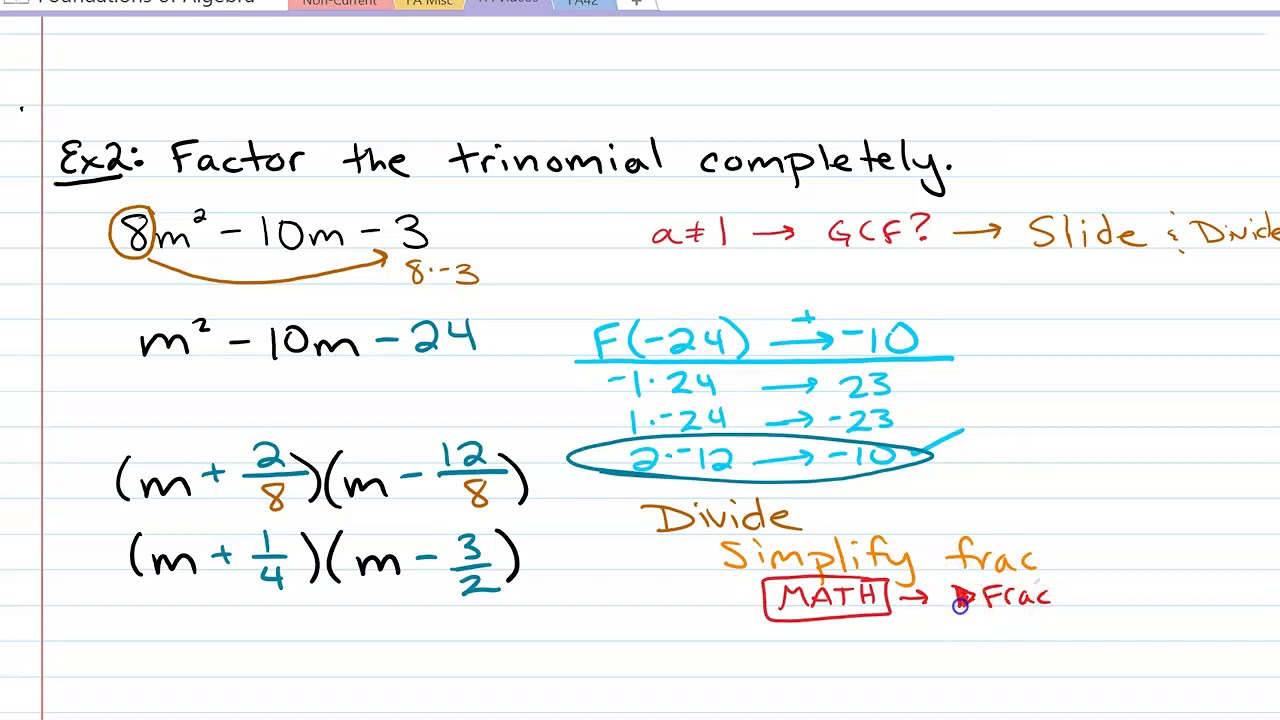 Foundations of Algebra Non-Current FA Misc FA42 +
Ex2: Factor the trinomial completely.
8m² - 10m - 3
8·-3
a≠1 → GCF? → Slide & Divide
m² - 10m - 24
F(-24) +→ -10
-1·24 → 23
1·-24 → -23
2·-12 → -10 ✓
(m + 2/8)(m - 12/8)
(m + 1/4)(m - 3/2)
Divide
Simplify frac
MATH → ▶Frac